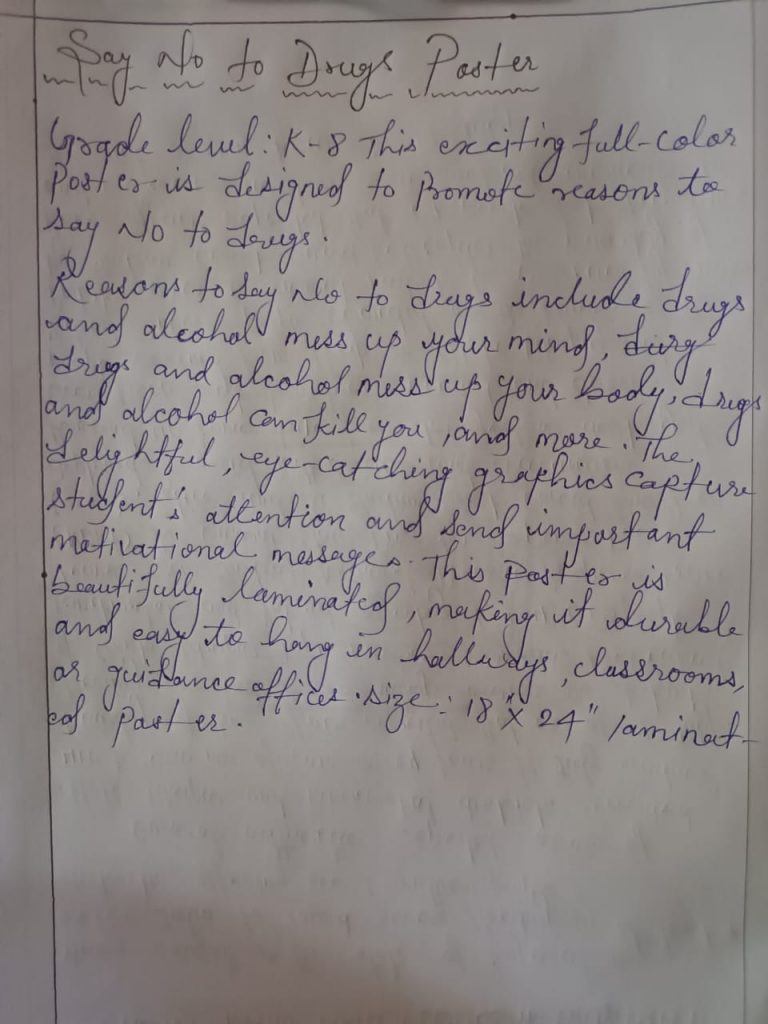 Say No to Drugs Poster
Grade level: K-8 This exciting full-color
Poster is designed to promote reasons to
say No to drugs.
Reasons to say No to drugs include drugs
and alcohol mess up your mind,
drugs and alcohol mess up your body, drugs
and alcohol can kill you, and more. The
delightful, eye-catching graphics capture
student's attention and send important
motivational messages. This poster is
beautifully laminated, making it durable
and easy to hang in hallways, classrooms,
or guidance offices. size: 18"X 24" laminat-
ed Poster.